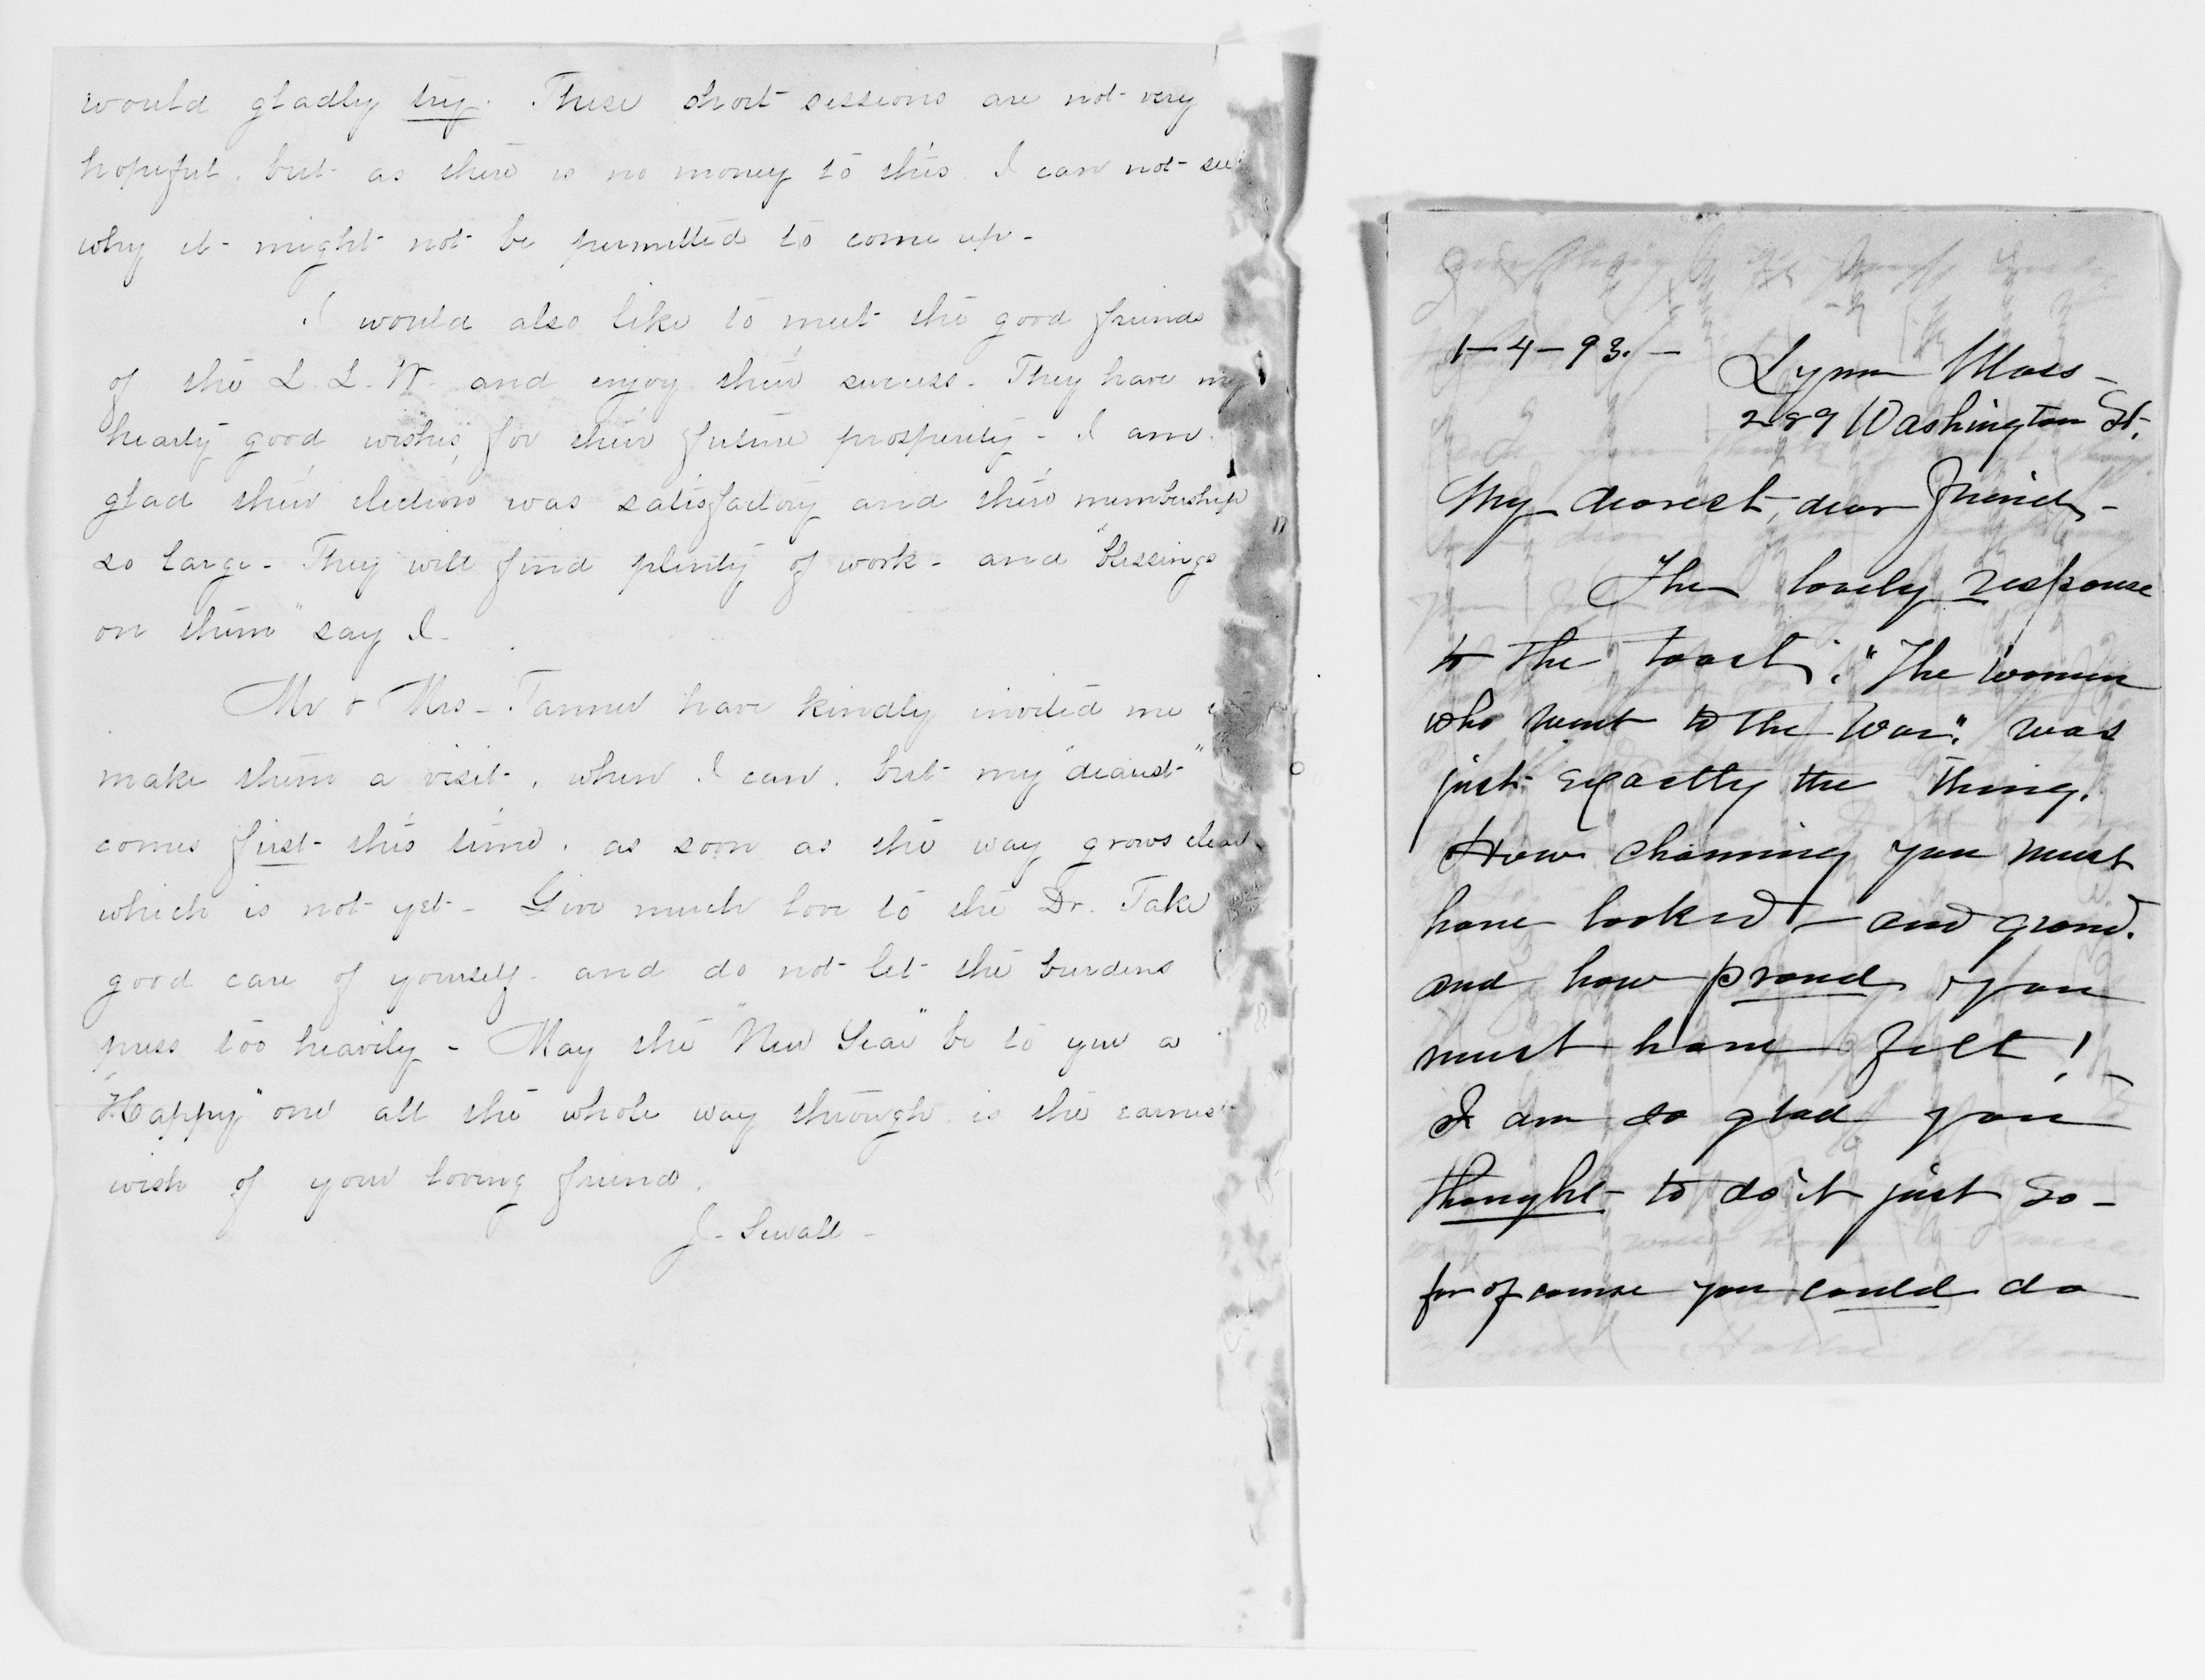 would gladly try. These short sessions are not very
hopeful, but as there is no money to this I can not see
why it might not be permitted to come up -
I would also like to meet the good friends
of the L. L. W. and enjoy their success - They have my
hearty good wishes, for their future prosperity - I am
glad their election was satisfactory and their membership
so large - They will find plenty of work - and "blessings
on them" say I -
Mr & Mrs - Tanner have kindly invited me
make them a visit, when I can, but my "dearest"
comes first this time, as soon as the way grows clear
which is not yet - Give much love to the Dr. Take
good care of yourself - and do not let the burdens
press too heavily - May the "New Year" be to you a
"Happy" one all the whole way through is the earnest
wish of your loving friend,
J - Sewall -
1-4-93. -
Lynn Mass -
289 Washington St.
My dearest, dear friend, -
The lovely response
to the toast; "The women
who went to the War." was
just exactly the thing.
How charming you must
have looked, - and grand.
and how proud you
must have felt!
I am so glad you
thought to do it just so -
for of course you could do